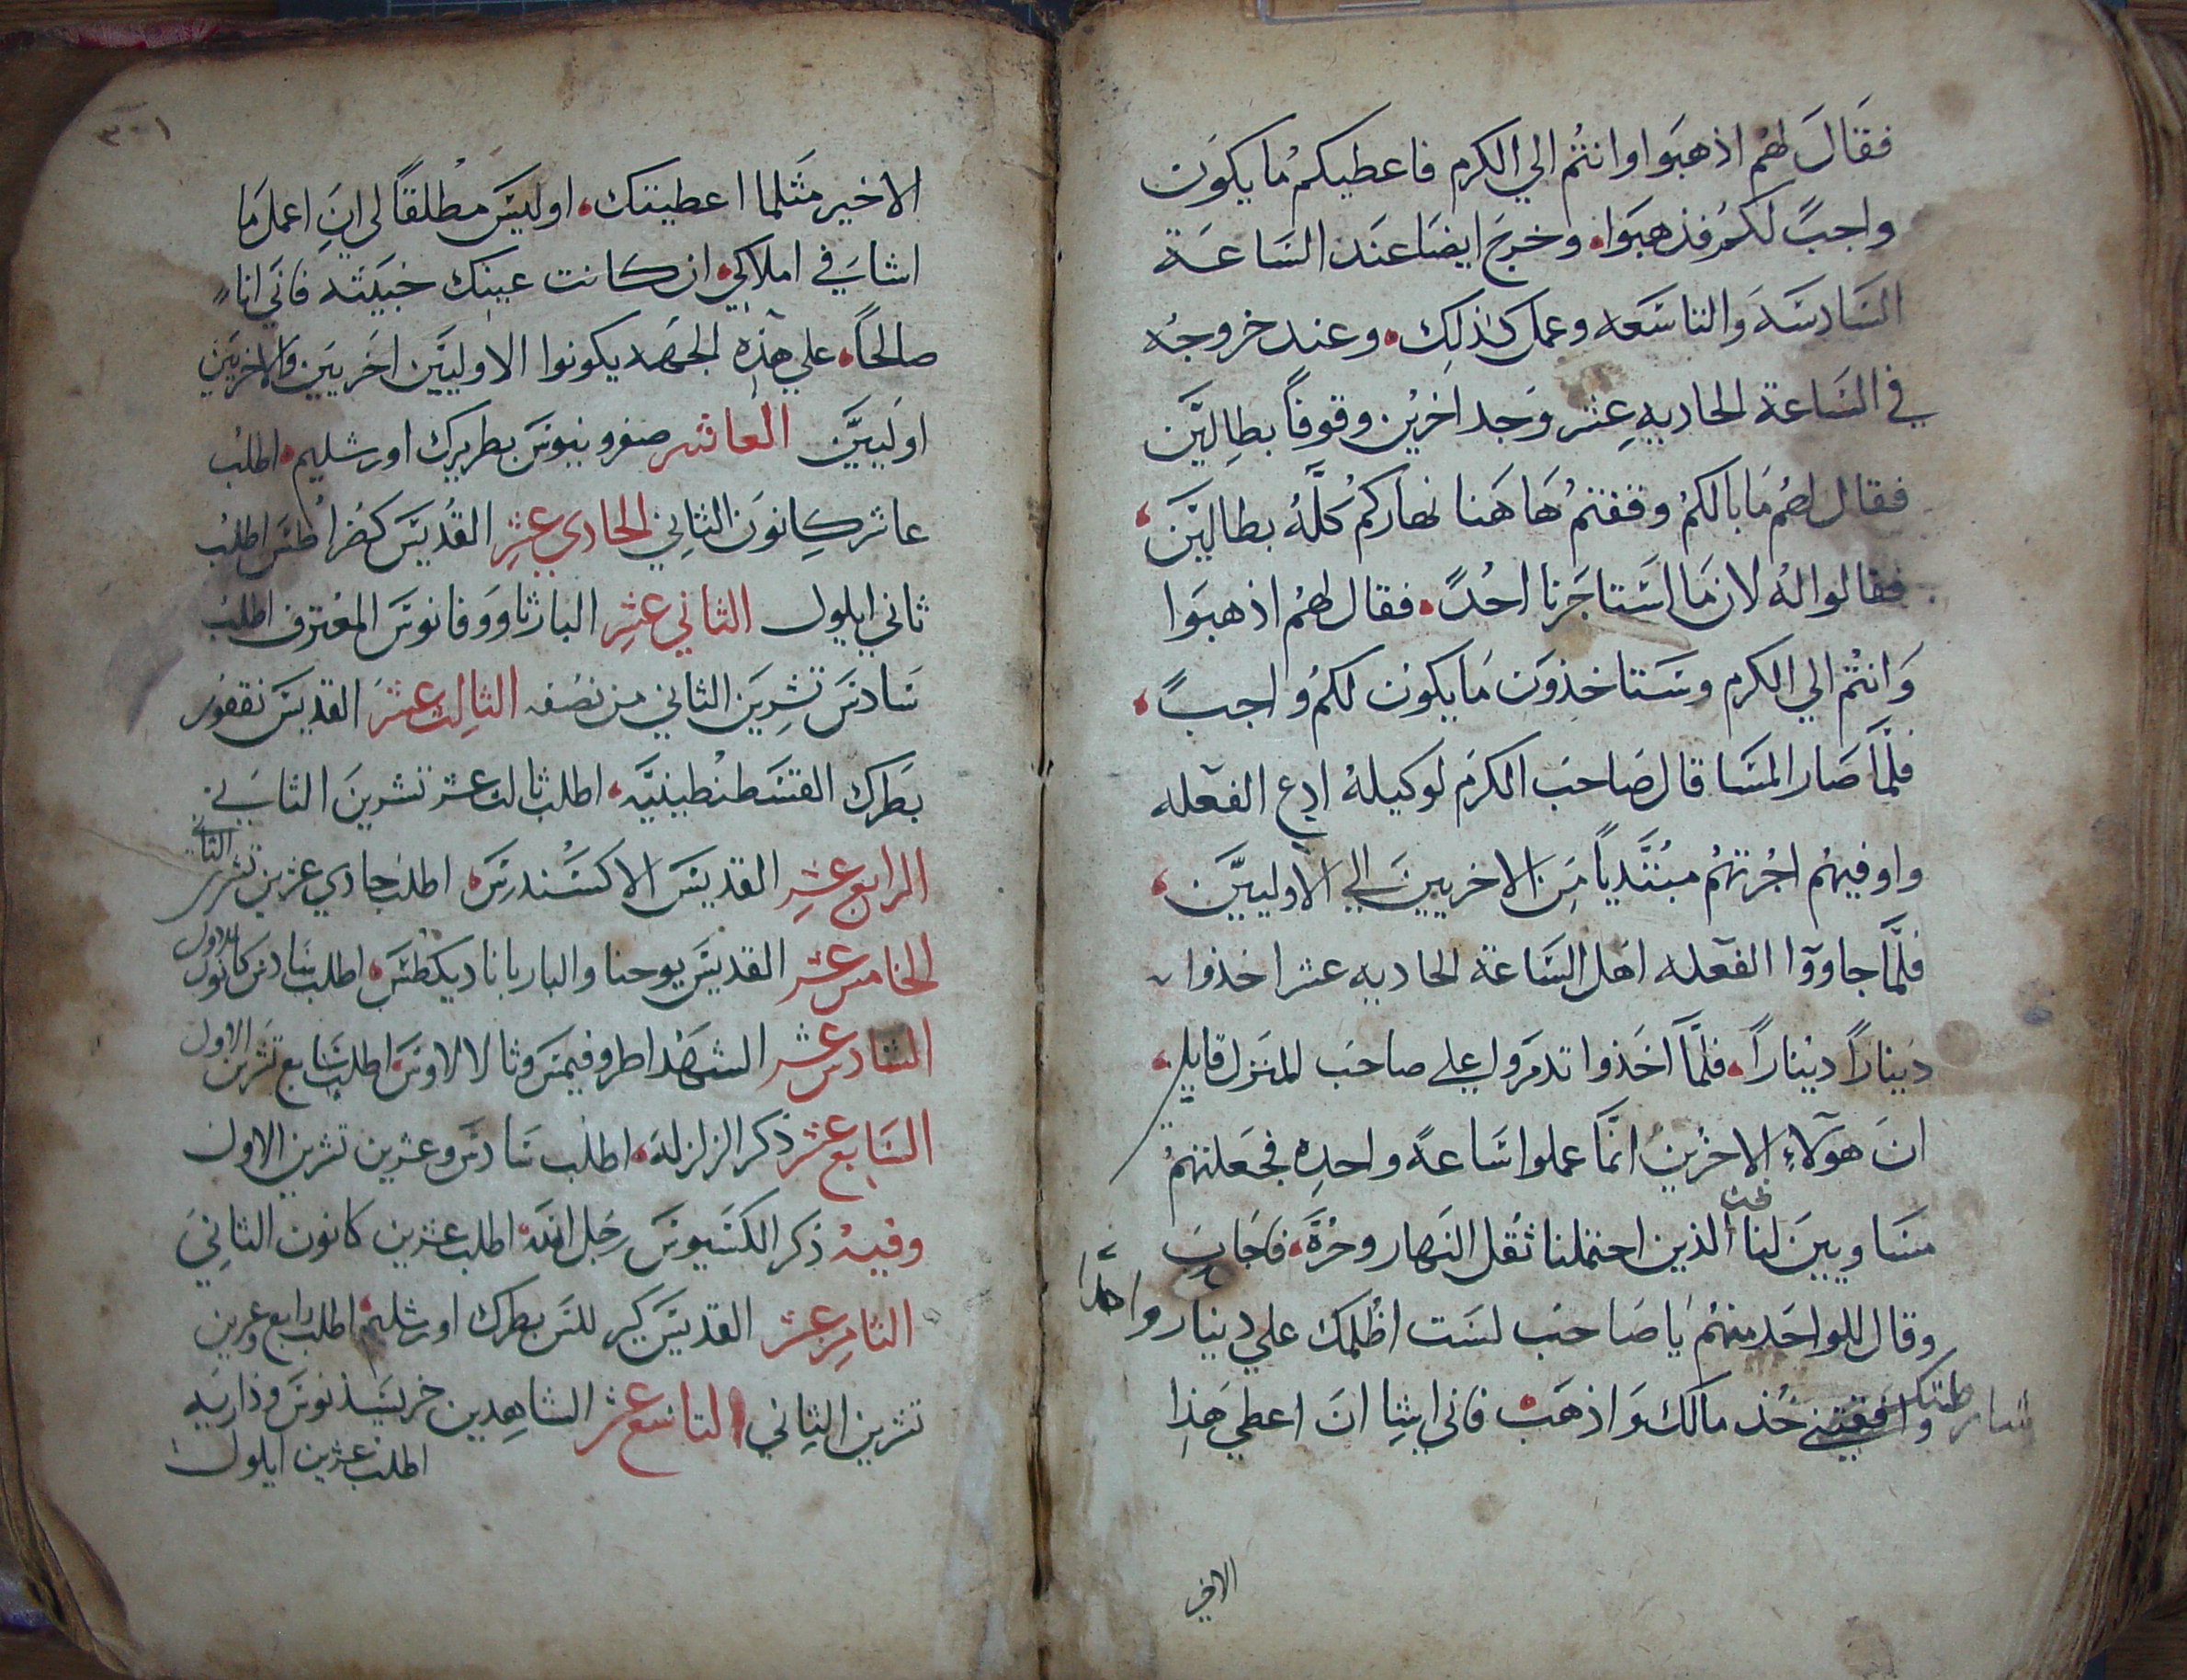 فقال لهم اذهبوا وانتم الي الكرم فاعطيكم ما يكون
واجبً لكم فذهبوا وخرج ايضا عند الساعة
السادسة والتاسعه وعمل كذلك وعند خروجه
في الساعة الحاديه عشر وجد اخرين وقوفاً بطالين
فقال لهم ما بالكم وقفتم هاهنا نهاركم كله بطالين
فقالوا له لان ما استاجرنا احدً فقال لهم اذهبوا
وانتم الي الكرم وستاخذون ما يكون لكم واجبً
فلما صار المسا قال صاحب الكرم لوكيله ادع الفعله
واوفيهم اجرتهم مبتدياً من الاخريين الي الاوليين
فلما جاووا الفعله اهل الساعة الحاديه عشر اخذوا
ديناراً ديناراً فلما اخذوا تدمروا علي صاحب المنزل قايلين
ان هولاء الاخرين انما عملوا ساعة واحده فجعلتهم
مساويين لنا نحن الذين احتملنا ثقل النهار وحره فاجاب
وقال للواحد منهم يا صاحب لست اظلمك علي دينار واحداً
شارطتك وافقتني خذ مالك واذهب فاني اشا ان اعطي هذا
الاخير
٣٠١
الاخير مثلما اعطيتك اوليس مطلقاً لي ان اعمل ما
اشا في املاكي ان كانت عينك خبيثه فاني انا
صالحاً علي هذه الجهه يكونوا الاوليين اخريين والاخريين
اوليين العاشر صفرونيوس بطريرك اورشليم اطلب
عاشر كانون الثاني الحادي عشر القديس اطلب
ثاني ايلول الثاني عشر البار ثاووفانوس المعترف اطلب
سادس تشرين الثاني من نصفه الثالث عشر القديس نقفور
بطرك القسطنطينيه اطلب ثالث عشر تشرين الثاني
الرابع عشر القديس الاكسندرس اطلب حادي عشرين تشرين الثاني
الخامس عشر القديس يوحنا والبار بانا ديكطس اطلب سادس كانون الاول
السادس عشر الشهدا طروفيمس وثالالاوس اطلب سابع تشرين الاول
السابع عشر ذكر الزلزله اطلب سادس وعشرين تشرين الاول
وفيه ذكر الكسيوس رجل الله اطلب عشرين كانون الثاني
الثامن عشر القديس كيرللس بطرك اورشليم اطلب رابع وعشرين
تشرين الثاني التاسع عشر الشاهدين خريسنذنوس وذاريه
اطلب عشرين ايلول